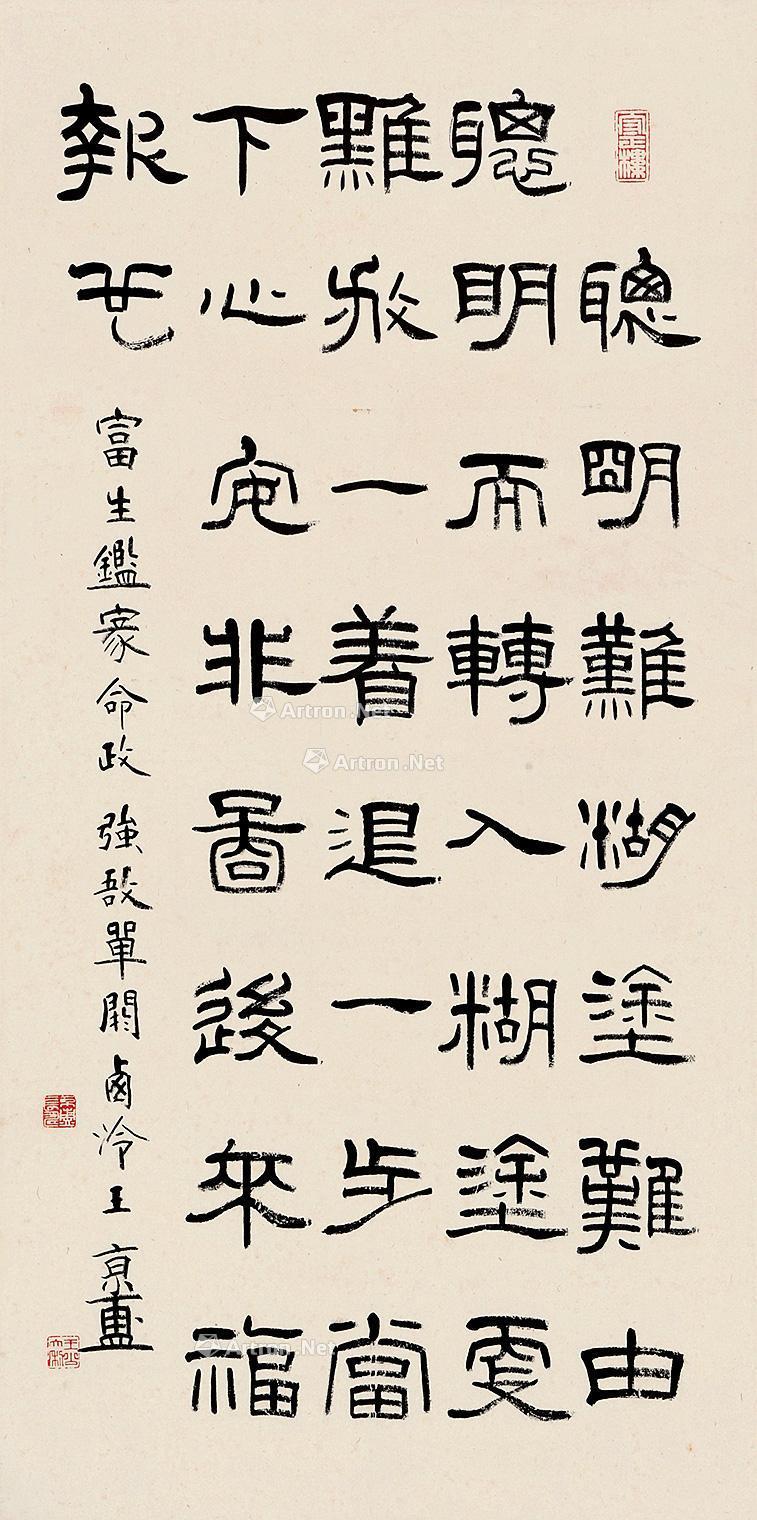 聰明難湖塗難由
聰明而轉入糊塗更
難放一着退一步當
下心安非圖後來福
報也
富生鑑家命政 強圉單閼 鹵泠王京盙
Artron.Net
Artron.Net
Artron.Net